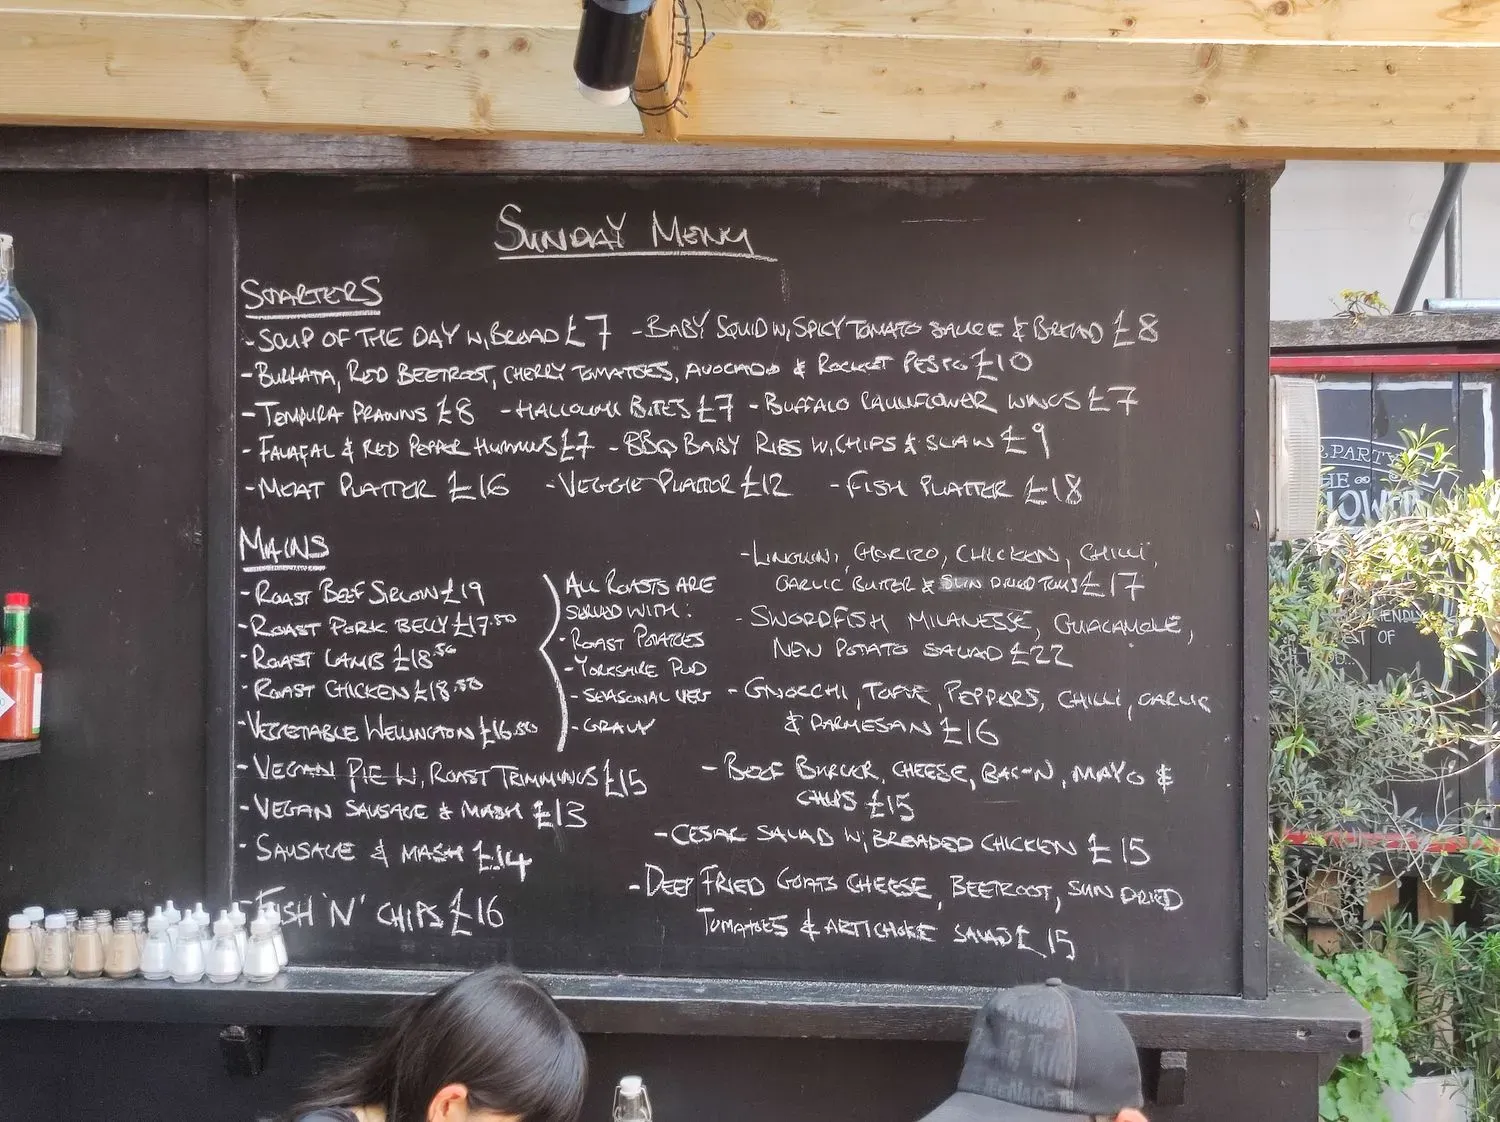 SUNDAY MENU
STARTERS
- SOUP OF THE DAY W, BREAD £7 - BABY SQUID W, SPICY TOMATO SAUCE & BREAD £8
- BURRATA, RED BEETROOT, CHERRY TOMATOES, AVOCADO & ROCKET PESTO £10
- TEMPURA PRAWNS £8 - HALLOUMI BITES £7 - BUFFALO CAULIFLOWER WINGS £7
- FALAFAL & RED PEPPER HUMMUS £7 - BBQ BABY RIBS W, CHIPS & SLAW £9
- MEAT PLATTER £16 - VEGGIE PLATTER £12 - FISH PLATTER £18
MAINS
- ROAST BEEF SIRLOIN £19
- ROAST PORK BELLY £17.50
- ROAST LAMB £18.50
- ROAST CHICKEN £18.50
- VEGETABLE WELLINGTON £16.50
ALL ROASTS ARE
SERVED WITH:
- ROAST POTATOES
- YORKSHIRE PUD
- SEASONAL VEG
- GRAVY
- VEGAN PIE W, ROAST TRIMMINGS £15
- VEGAN SAUSAGE & MASH £13
- SAUSAGE & MASH £14
- FISH 'N' CHIPS £16
- LINGUINI, CHORIZO, CHICKEN, CHILLI,
GARLIC BUTTER & SUN DRIED TOMS £17
- SWORDFISH MILANESSE, GUACAMOLE,
NEW POTATO SALAD £22
- GNOCCHI, TOFU, PEPPERS, CHILLI, GARLIC
& PARMESAN £16
- BEEF BURGER, CHEESE, BACON, MAYO &
CHIPS £15
- CESAR SALAD W, BREADED CHICKEN £15
- DEEP FRIED GOATS CHEESE, BEETROOT, SUN DRIED
TOMATOES & ARTICHOKE SALAD £15
PARTY
THE
OF